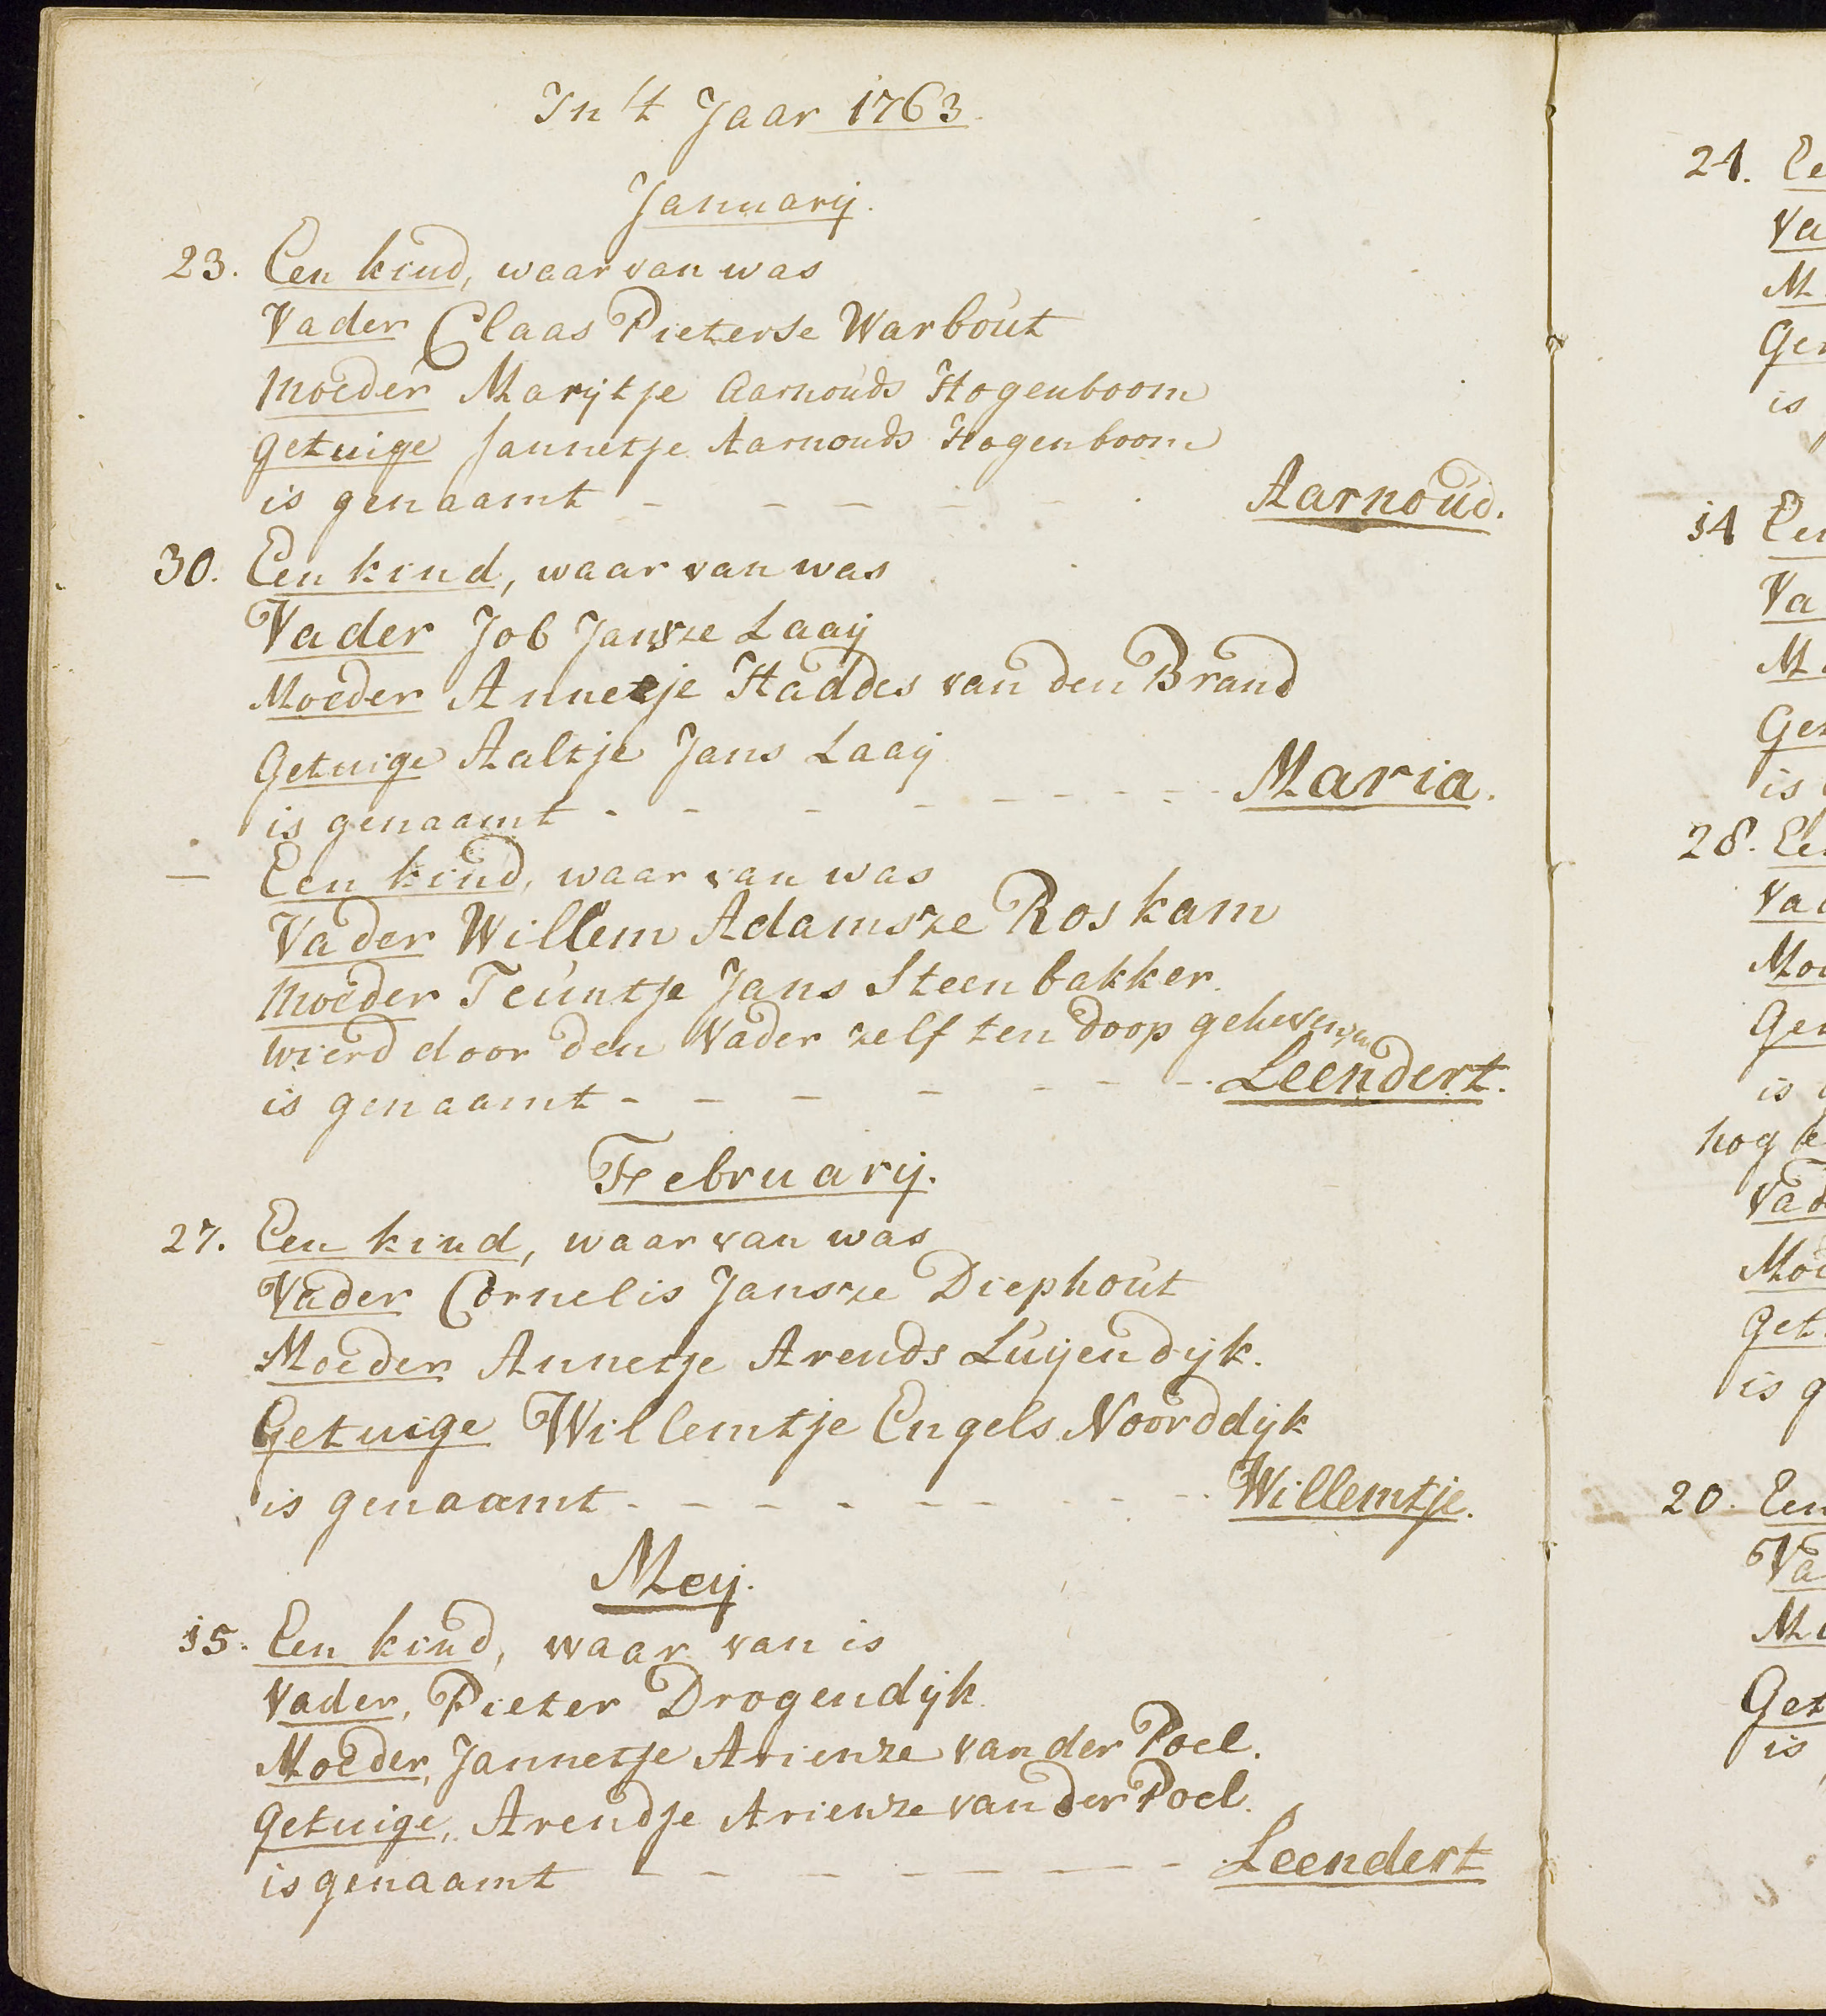 In 't Jaar 1763.
Januarij.
23. Een kind, waar van was
Vader Claas Pieterse Warbout
Moeder Marijtje Aarnouds Hogenboom
getuige Jannetje Aarnouds Hogenboom
is genaamt - - - - - Aarnoud.
30. Een kind, waar van was
Vader Job Jansze Laaij
Moeder Annetje Haddes van den Brand
Getuige Aaltje Jans Laaij
is genaamt - - - - - - - - - Maria.
— Een kind, waar van was
Vader Willem Adamsze Roskam
Moeder Teuntje Jans Steenbakker.
wierd door den Vader zelf ten doop geheven
is genaamt - - - - - - - Leendert.
Februarij.
27. Een kind, waar van was
Vader Cornelis Jansze Diephout
Moeder Annetje Arends Luijendijk.
Getuige Willemtje Engels Noorddijk
is genaamt - - - - - - - - - Willemtje.
Meij.
15. Een kind, waar van is
Vader, Pieter Drogendijk
Moeder, Jannetje Arienze van der Poel.
Getuige, Arendje Arienze van der Poel.
is genaamt - - - - - - - - Leendert
21. Ee
Va
M
Get
is
14 Een
Va
Mo
Get
is
28. Ee
Vad
Moe
Get
is g
nog e
Vad
Moe
Get
is g
20. Een
Va
Mo
Get
is